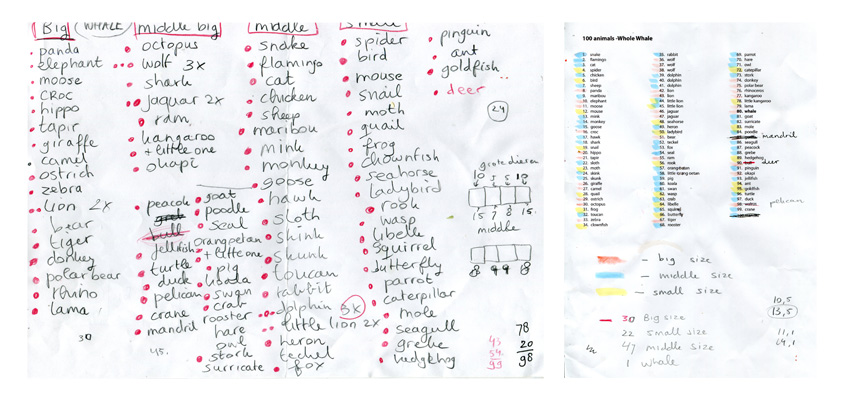 Big
WHALE
middle big
middle
small
panda
elephant
moose
croc
hippo
tapir
giraffe
camel
ostrich
zebra
lion 2x
bear
tiger
donkey
polar bear
rhino
lama
30
octopus
wolf 3x
shark
jaguar 2x
ram
kangaroo
+ little one
okapi
peacock
jellfish
turtle
duck
pelican
crane
mandril
45.
goat
poodle
seal
orangoetan
+ little one
pig
koala
swan
crab
rooster
hare
owl
stork
surricate
snake
flamingo
cat
chicken
sheep
maribou
mink
monkey
goose
hawk
sloth
shink
skunk
toucan
rabbit
dolphin 3x
little lion 2x
heron
teckel
fox
spider
bird
mouse
snail
moth
quail
frog
clownfish
seahorse
ladybird
rook
wasp
libelle
squirrel
butterfly
parrot
caterpillar
mole
seagull
grebe
hedgehog
pinguin
ant
goldfish
deer
24
grote dieren
10 5 5 10
15 7 8 15.
middle
8 8
78
20
98
99
100 animals -Whole Whale
1. snake
2. flamingo
3. cat
4. spider
5. chicken
6. bird
7. sheep
8. panda
9. maribou
10. elephant
11. moose
12. mouse
13. mink
14. monkey
15. goose
16. croc
17. hawk
18. snail
19. sloth
20. hippo
21. tapir
23. moth
26. giraffe
27. camel
28. quail
29. ostrich
30. octopus
31. frog
32. toucan
33. zebra
34. clownfish
35. rabbit
36. wolf
37. wolf
38. wolf
39. dolphin
40. dolphin
41. dolphin
42. lion
43. lion
44. little lion
45. little lion
46. jaguar
47. jaguar
48. seahorse
49. heron
50. ladybird
51. bear
52. shark
53. teckel
54. fox
55. seal
56. ram
57. rook
58. orangoetan
59. little orang oetan
60. pig
61. koala
62. swan
63. wasp
64. crab
65. libelle
66. squirrel
67. butterfly
68. tiger
69. rooster
69. parrot
70. hare
71. owl
72. caterpillar
73. stork
74. donkey
75. polar bear
76. rhinoceros
77. kangaroo
78. little kangaroo
79. lama
80. whale
81. goat
82. surricate
83. mole
84. poodle
mandril
86. seagull
87. peacock
88. grebe
89. hedgehog
deer
91. pinguin
92. okapi
93. jellfish
94. ant
95. goldfish
96. turtle
97. duck
pelican
99. crane
- big size
- middle size
- small size
30 Big size
22 small size
47 middle size
1 whale
10,5
13,5
11,1